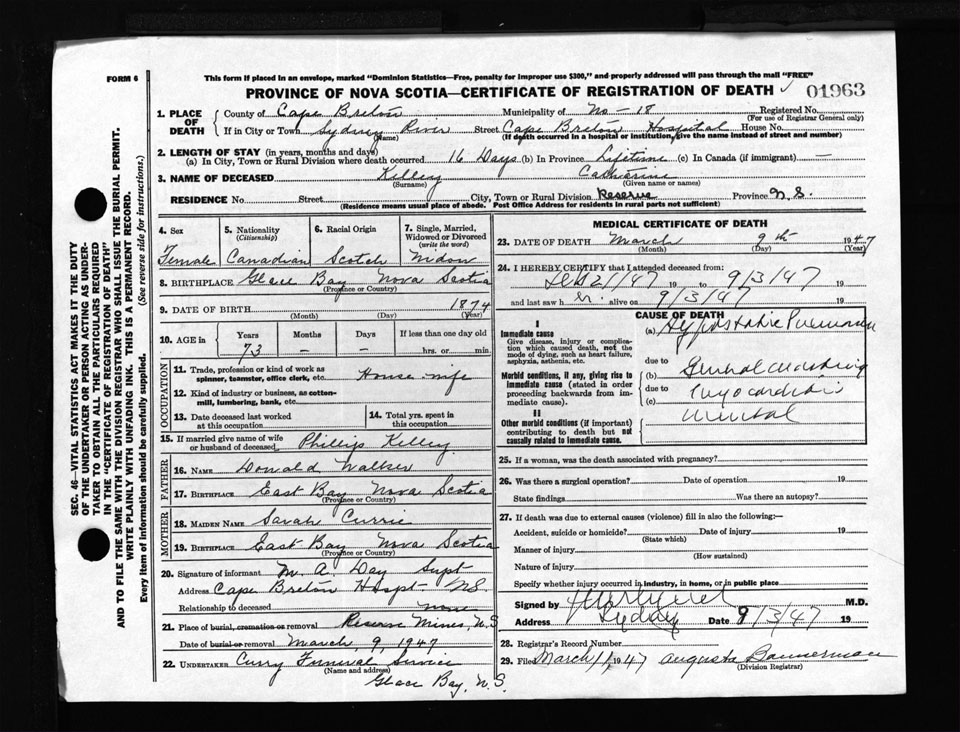 FORM 6
This form if placed in an envelope, marked "Dominion Statistics—Free, penalty for improper use $300," and properly addressed will pass through the mail "FREE"
PROVINCE OF NOVA SCOTIA—CERTIFICATE OF REGISTRATION OF DEATH 01963
SEC. 46—VITAL STATISTICS ACT MAKES IT THE DUTY
OF THE UNDERTAKER OR PERSON ACTING AS UNDER-
TAKER TO OBTAIN ALL THE PARTICULARS REQUIRED
IN THE "CERTIFICATE OF REGISTRATION OF DEATH"
AND TO FILE THE SAME WITH THE DIVISION REGISTRAR WHO SHALL ISSUE THE BURIAL PERMIT.
WRITE PLAINLY WITH UNFADING INK. THIS IS A PERMANENT RECORD.
Every item of information should be carefully supplied. (See reverse side for instructions.)
1. PLACE OF DEATH
County of Cape Breton Municipality of No-18 Registered No.
(For use of Registrar General only)
If in City or Town Sydney River Street Cape Breton Hospital House No.
(Name) (If death occurred in a hospital or institution, give the name instead of street and number)
2. LENGTH OF STAY (in years, months and days)
(a) In City, Town or Rural Division where death occurred 16 Days (b) In Province Lifetime (c) In Canada (if immigrant) —
3. NAME OF DECEASED Killey Catherine
(Surname) (Given name or names)
RESIDENCE No. Street City, Town or Rural Division Reserve Province N.S.
(Residence means usual place of abode. Post Office Address for residents in rural parts not sufficient)
4. Sex Female
5. Nationality (Citizenship) Canadian
6. Racial Origin Scotch
7. Single, Married, Widowed or Divorced (write the word) Widow
8. BIRTHPLACE Glace Bay Nova Scotia
(Province or Country)
9. DATE OF BIRTH 1874
(Month) (Day) (Year)
10. AGE in Years Months Days If less than one day old
73 - - hrs. or min.
OCCUPATION
11. Trade, profession or kind of work as spinner, teamster, office clerk, etc. House-wife
12. Kind of industry or business, as cotton-mill, lumbering, bank, etc.
13. Date deceased last worked at this occupation
14. Total yrs. spent in this occupation
15. If married give name of wife or husband of deceased Phillip Killey
FATHER
16. NAME Donald Walker
17. BIRTHPLACE East Bay Nova Scotia
(Province or Country)
MOTHER
18. MAIDEN NAME Sarah Currie
19. BIRTHPLACE East Bay Nova Scotia
(Province or Country)
20. Signature of informant M. A Day Supt
Address Cape Breton Hospt- N.S.
Relationship to deceased none
21. Place of burial, cremation or removal Reserve Mines, N.S
Date of burial or removal March, 9, 1947
22. UNDERTAKER Curry Funeral Service
(Name and address)
Glace Bay, N.S.
MEDICAL CERTIFICATE OF DEATH
23. DATE OF DEATH March 9th 1947
(Month) (Day)
24. I HEREBY CERTIFY that I attended deceased from:
Feb 21/47 19 to 9/3/47 19
and last saw her alive on 9/3/47 19
CAUSE OF DEATH
I
Immediate cause
Give disease, injury or complication which caused death, not the mode of dying, such as heart failure, asphyxia, asthenia, etc.
(a) Hypostatic Pneumonia
due to
Morbid conditions, if any, giving rise to immediate cause (stated in order proceeding backwards from immediate cause).
(b) General
due to
(c) Myocarditis
II
Other morbid conditions (if important) contributing to death but not causally related to immediate cause.
Mental
25. If a woman, was the death associated with pregnancy?
26. Was there a surgical operation? Date of operation 19
State findings Was there an autopsy?
27. If death was due to external causes (violence) fill in also the following:—
Accident, suicide or homicide? Date of injury 19
(State which)
Manner of injury
(How sustained)
Nature of injury
Specify whether injury occurred in industry, in home, or in public place
Signed by M.D.
Address Sydney Date 9/3/47 19
28. Registrar's Record Number
29. Filed March 11, 1947 Augusta Bannerman
(Division Registrar)